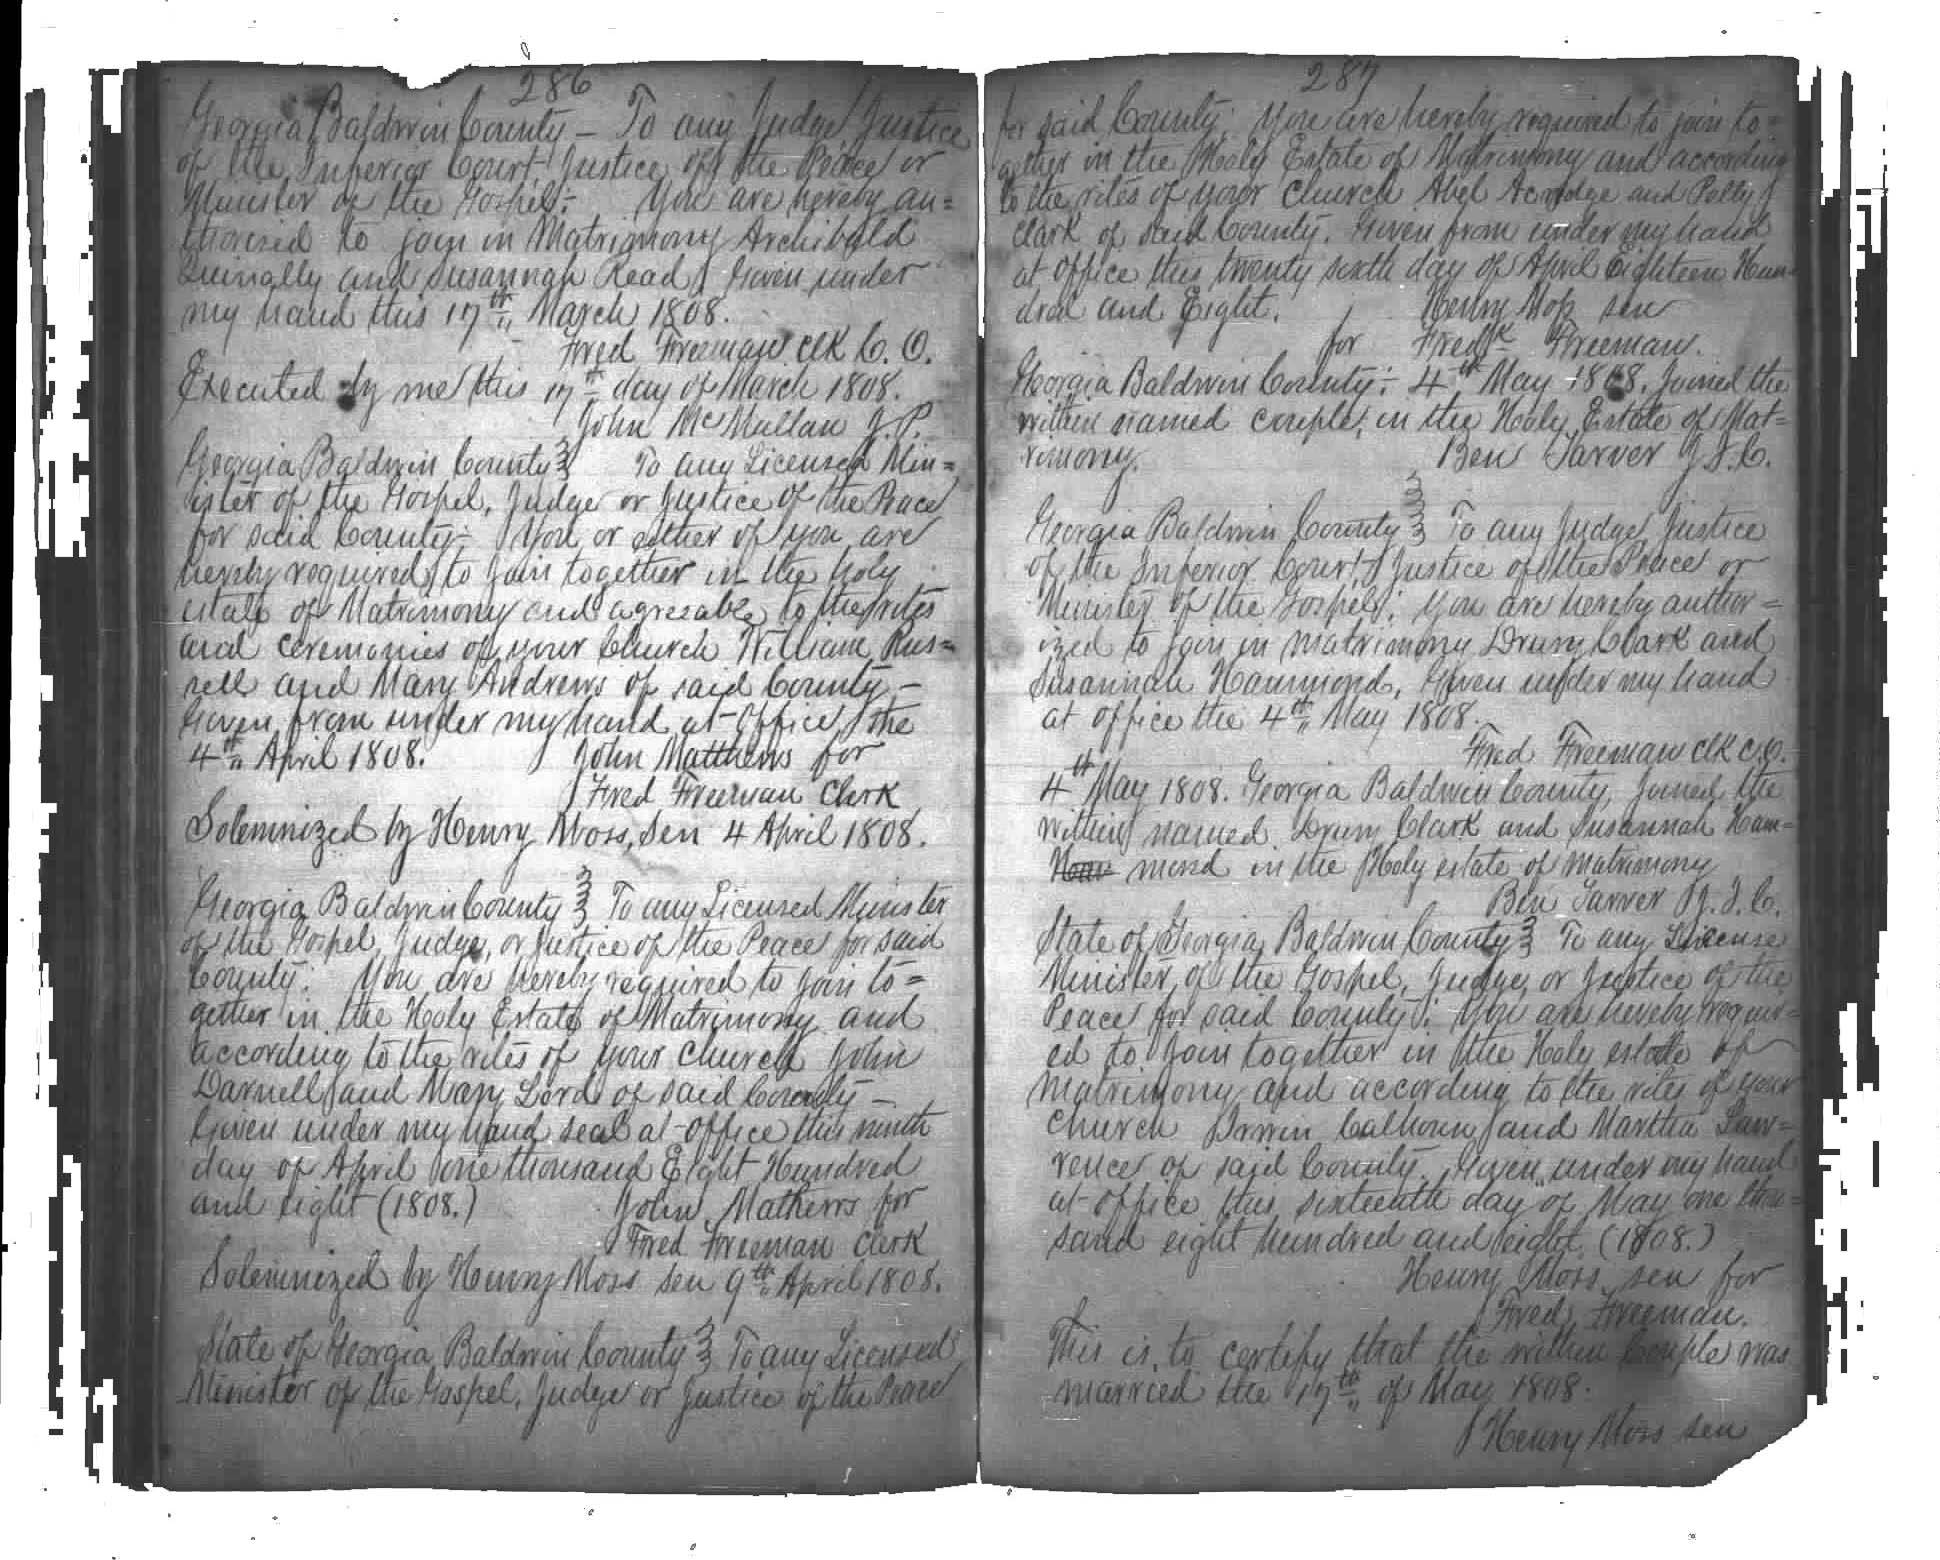 286
Georgia Baldwin County - To any Judge Justice
of the Inferior Court Justice of the Peace or
Minister of the Gospel:- You are hereby au=
thorised to join in Matrimony Archibald
and Susannah Read. Given under
my hand this 17th March 1808.
Fred Freeman Clk C. O.
Executed by me this 17th day of March 1808.
John McMullan J.P.
Georgia Baldwin County To any Licensed Min=
ister of the Gospel, Judge or Justice of the Peace
for said County:- You or either of you are
hereby required to join together in the holy
estate of Matrimony and agreeable to the rites
and ceremonies of your Church William Rus=
sell and Mary Andrews of said County -
Given from under my hand at Office the
4th April 1808. John Matthews for
Fred Freeman Clerk
Solemnized by Henry Moss, sen 4 April 1808.
Georgia Baldwin County To any Licensed Minister
of the Gospel, Judge, or Justice of the Peace for said
County: You are hereby required to join to=
gether in the Holy Estate of Matrimony and
according to the rites of your Church John
Darnell and Mary Lord of said County -
Given under my hand seal at office this ninth
day of April one thousand Eight Hundred
and eight (1808.) John Mathews for
Fred Freeman Clerk
Solemnized by Henry Moss sen 9th April 1808.
State of Georgia Baldwin County To any Licensed
Minister of the Gospel, Judge or Justice of the Peace
287
for said County: You are hereby required to join to=
gether in the Holy Estate of Matrimony and according
to the rites of your Church Abel Acridge and Polly
Clark of said County. Given from under my hand
at office this twenty sixth day of April Eighteen Hun=
dred and Eight. Henry Moss sen
for Fredk Freeman.
Georgia Baldwin County:- 4th May 1808. Joined the
within named couple, in the Holy Estate of Mat=
rimony. Ben Tarver J.I.C.
Georgia Baldwin County To any Judge Justice
of the Inferior Court, Justice of the Peace or
Minister of the Gospel: You are hereby author=
ized to join in matrimony Drury Clark and
Susannah Hammond, Given under my hand
at office the 4th May 1808.
Fred Freeman Clk C.O.
4th May 1808. Georgia Baldwin County, Joined the
within named Drury Clark and Susannah Ham=
Ham mond in the Holy estate of matrimony
Ben Tarver J.I.C.
State of Georgia Baldwin County To any License
Minister of the Gospel, Judge or Justice of the
Peace for said County: You are hereby requir=
ed to join together in the Holy estate of
matrimony and according to the rites of your
Church Irwin Calhoun and Martha Law=
rence of said County. Given under my hand
at office this sixteenth day of May one thou=
sand eight hundred and eight. (1808.)
Henry Moss sen for
Fred Freeman.
This is to certify that the within Couple was
married the 17th of May 1808.
Henry Moss sen